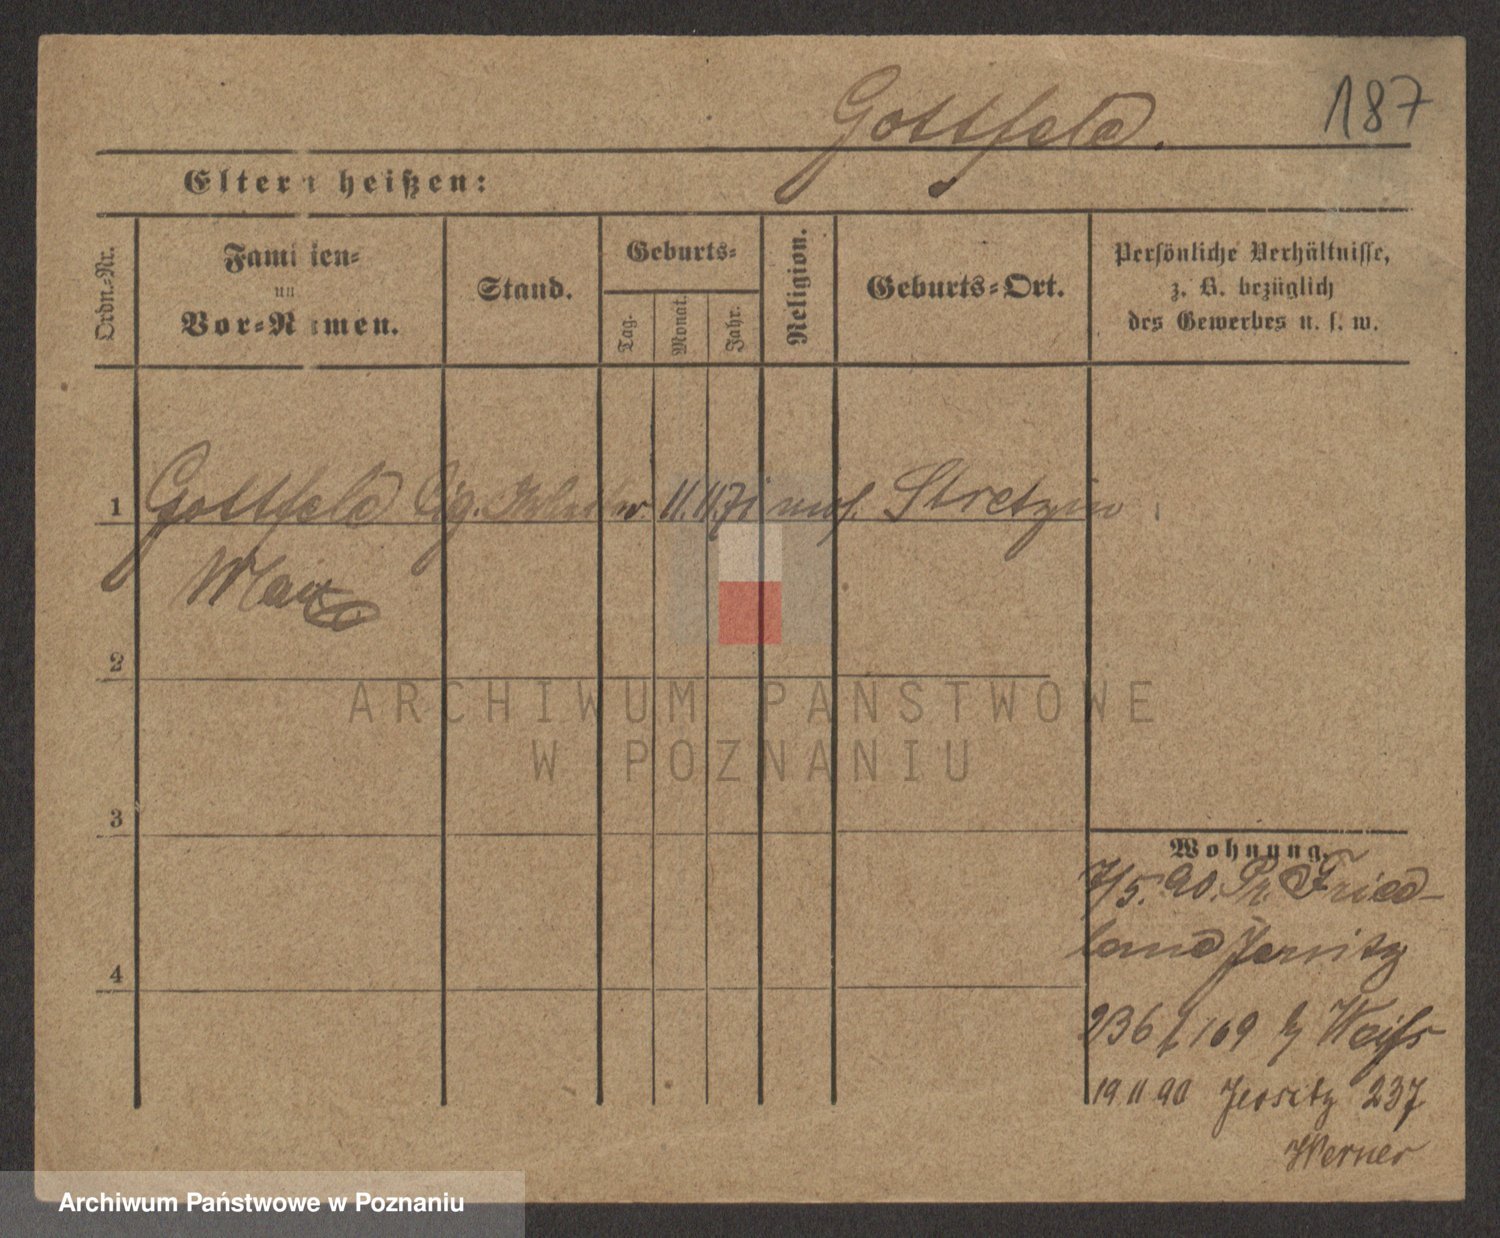 187
Gottfeld.
Eltern heißen:
Ordn.-Nr.
Familien-
un
Vor-Namen.
Stand.
Geburts-
Tag.
Monat.
Jahr.
Religion.
Geburts-Ort.
Persönliche Verhältnisse,
z. B. bezüglich
des Gewerbes u. s. w.
1 Gottfeld Cig. 11. 11. 71 mos. Stretzin
Max
2
ARCHIWUM PAŃSTWOWE
W POZNANIU
3
Wohnung.
7/5. 90. Pr. Fried-
land Jersitz
4
236 f 169 b/ Weiss
19 11 90 Jersitz 237
Werner
Archiwum Państwowe w Poznaniu